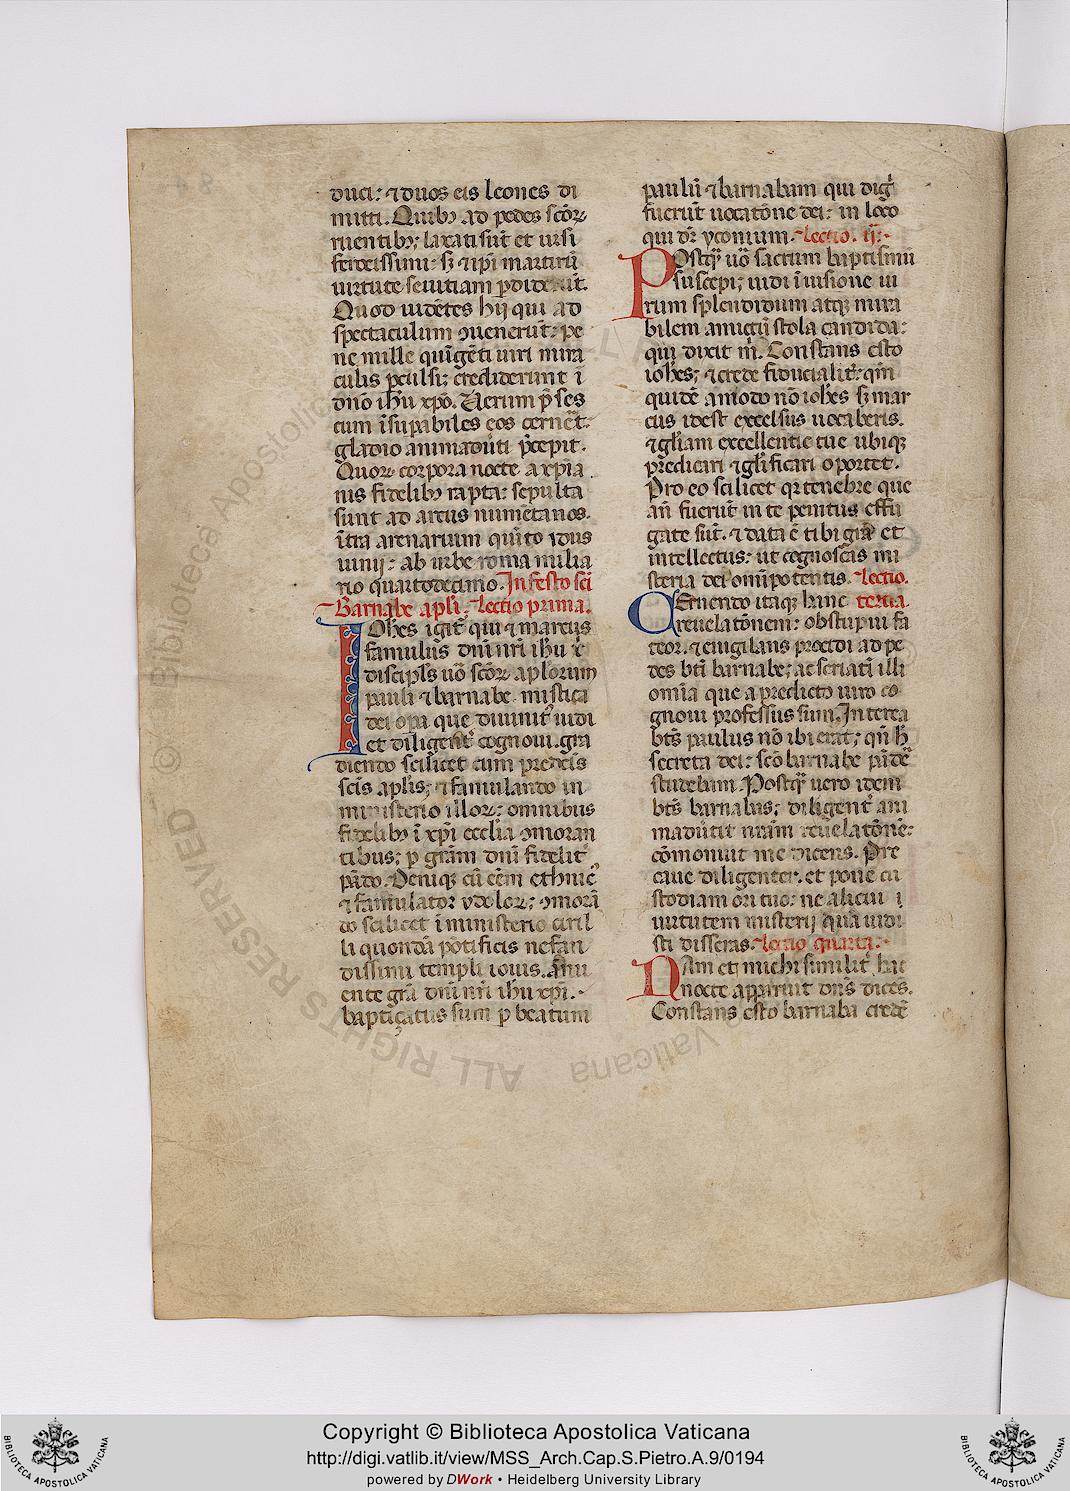 duci: ⁊ duos eis leones di
mitti. Quibꝫ ad pedes scōꝝ
ruentibꝫ; laxati sūt et ursi
ferocissimi: sꝫ ⁊ ip̄i martirū
uirtute seuitiam ꝑdiderūt.
Quod uidētes hij qui ad
spectaculum ꝯuenerūt: pe
ne mille quīgēti uiri mira
culis ꝑculsi; crediderunt ī
dn̄o ih̄u xp̄o. Uerum p̄ses
cum īsuꝑabiles eos cernēt:
gladio animaduti p̄cepit.
Quoꝝ corpora nocte a xp̄ia
nis fidelibꝫ rapta: sepulta
sunt ad arcus numētanos.
ītra arenarium quīto idus
iunij: ab urbe roma milia
rio quartodecimo. In festo sc̄i
Barnabe apl̄i. Lectio prima.
IOh̄es igit̄ qui ⁊ marcus
famulus dn̄i nr̄i ih̄u x̄
discipl̄s uō scōꝝ aplorum
pauli ⁊ barnabe mistica
dei opa que diuinit̄ uidi
et diligent̄ cognoui. gra
diendo scilicet cum predcīs
scīs apl̄is; ⁊ famulando in
ministerio illoꝝ: omnibus
fidelibꝫ ī xp̄i ecclīa ꝯmoran
tibus; ꝑ grām dn̄i fidelit̄
pādo. Deniqꝫ cū eēm ethnic̄
⁊ famulator ydoloꝝ; ꝯmorā
do scilicet ī ministerio ciril
li quondā pōtificis nefan
dissimi templi iouis. Anu
ente grā dn̄i nr̄i ih̄u xp̄i.
bapti̧catus sum ꝑ beatum
paulū ⁊ barnabam qui diḡ
fuerūt uocatōne dei: in loco
qui dr̄ yconium. Lectio. ij.
POstqꝫ uō sacrum baptismū
suscepi; uidi ī uisione ui
rum splendidum atqꝫ mira
bilem amictū stola candida:
qui dixit m̄. Constans esto
ioh̄es; ⁊ crede fiducialit̄: qm̄
quidē amodo nō ioh̄es sꝫ mar
cus idest excelsus uocaberis.
⁊ gl̄iam excellentie tue ubiqꝫ
p̄redicari ⁊ gl̄ificari oportet.
Pro eo scilicet qꝛ tenebre que
an̄ fuerūt in te penitus effu
gate sūt. ⁊ data ē tibi grā et
intellectus: ut cognoscas mi
steria dei omīpotentis. Lectio.
CErnendo itaqꝫ hanc tertia.
reuelatōnem: obstupui fa
teor. ⁊ euigilans procidi ad pe
des bt̄i barnabe; ac seriatī illi
omīa que a predicto uiro co
gnoui professus sum. Interea
bt̄s paulus nō ibi erat; qn̄ h̄
secreta dei: scō barnabe pādē
studebam. Postqꝫ uero idem
bt̄s barnabas; diligent̄ ani
maduertit mām reuelatōnē:
cōmonuit me dicens. Pre
caue diligenter. et pone cu
stodiam ori tuo: ne alicui i
uirtutem misterij quā uidi
sti disseras. Lectio quarta.
NAm et michi similit̄ hac
nocte apparuit dn̄s dicēs.
Constans esto barnaba credē
84
© Biblioteca Apostolica Vaticana
ALL RIGHTS RESERVED
Copyright © Biblioteca Apostolica Vaticana
http://digi.vatlib.it/view/MSS_Arch.Cap.S.Pietro.A.9/0194
powered by DWork • Heidelberg University Library
BIBLIOTECA APOSTOLICA VATICANA
BIBLIOTECA APOSTOLICA VATICANA